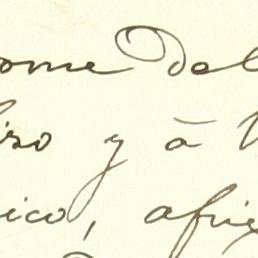 ome del
iso y á
ico, afri